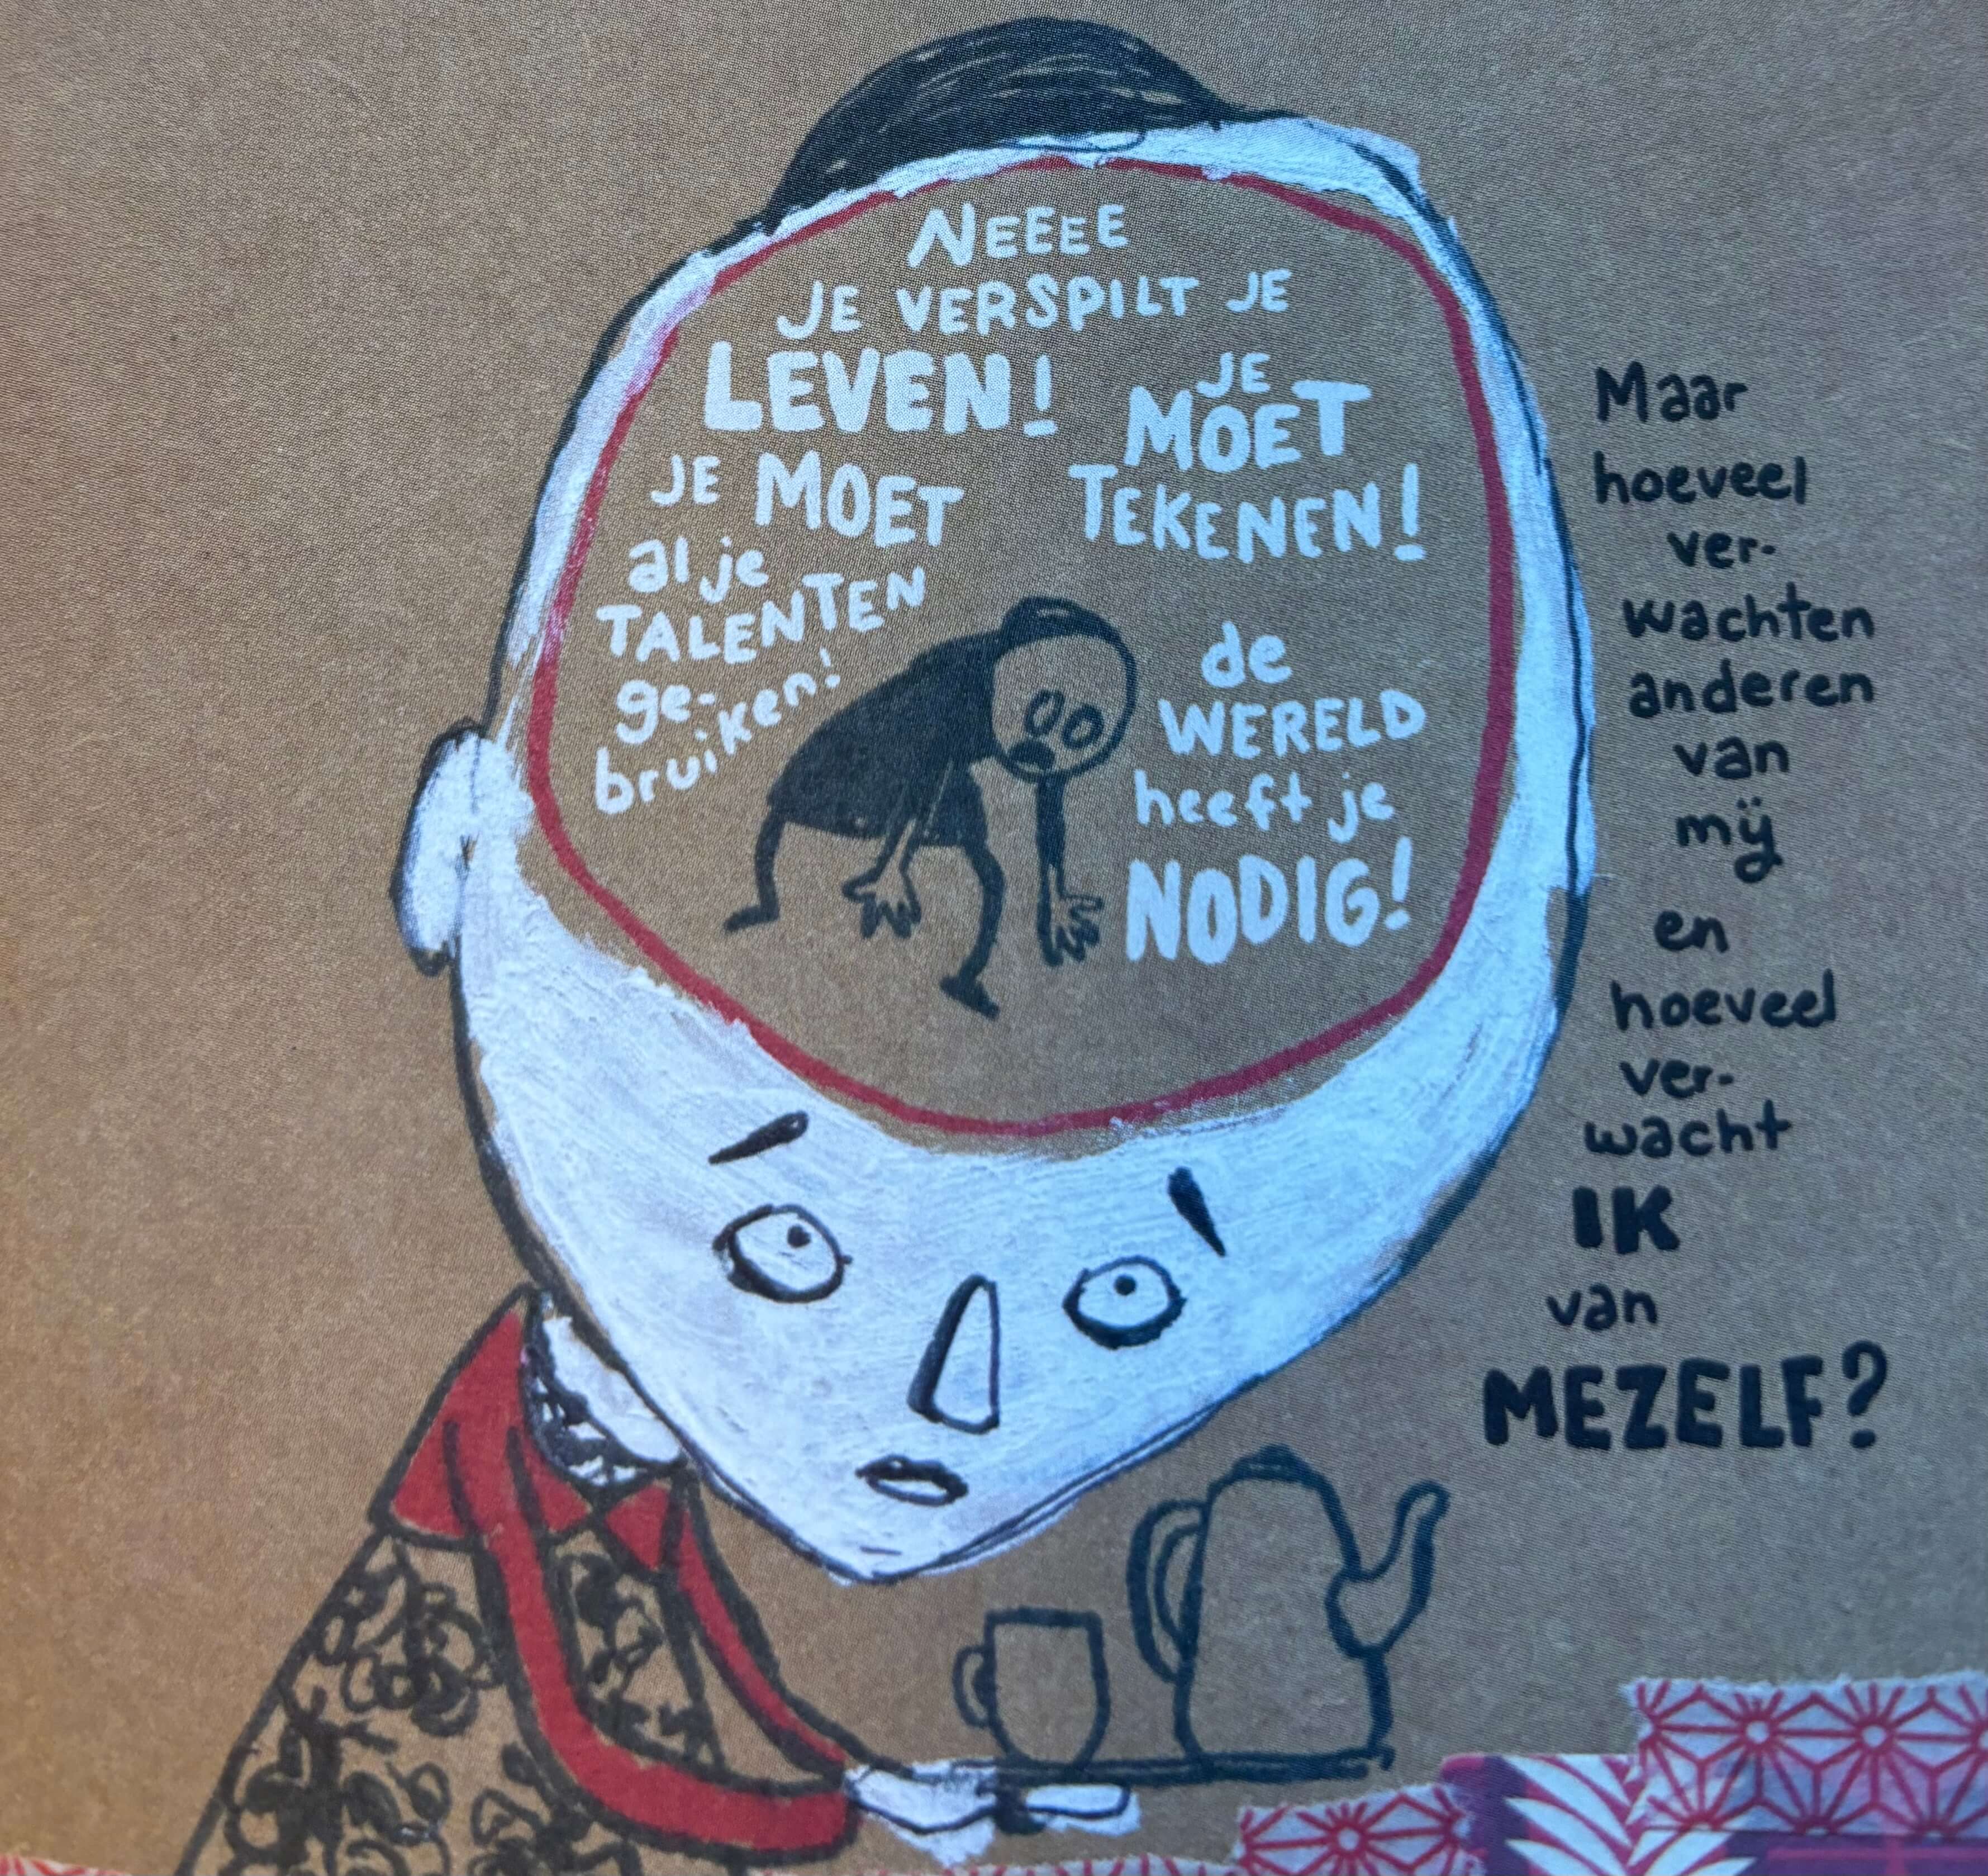 NEEEE
JE VERSPILT JE
LEVEN!
JE
MOET
TEKENEN!
JE MOET
al je
TALENTEN
ge-
bruiken!
de
WERELD
heeft je
NODIG!
Maar
hoeveel
ver-
wachten
anderen
van
mij
en
hoeveel
ver-
wacht
IK
van
MEZELF?